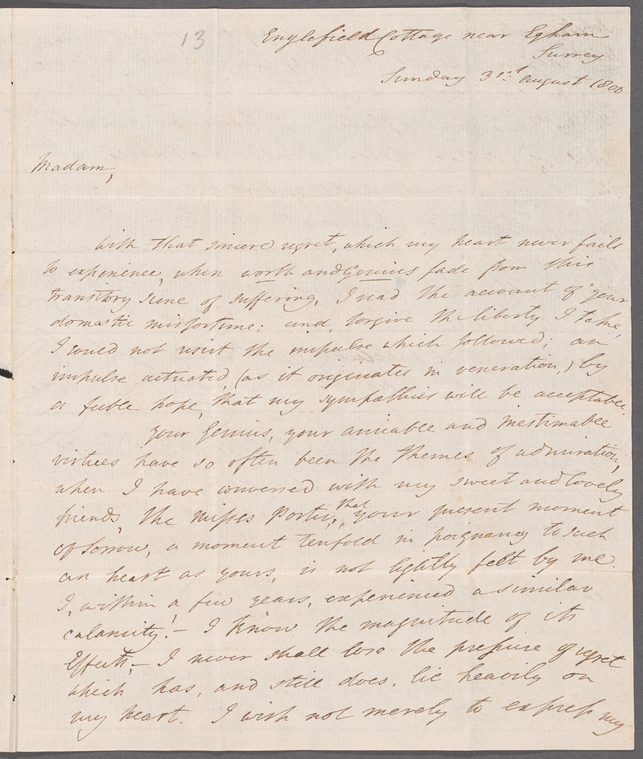 13
Englefield Cottage near Egham
Surrey
Sunday 31st August 1800
Madam,
With that sincere regret, which my heart never fails
to experience, when worth and Genius fade from this
transitory scene of suffering, I read the account of your
domestic misfortune; and, forgive the liberty I take,
I could not resist the impulse which followed; an
impulse actuated, (as it originates in veneration,) by
a feeble hope, that my sympathies will be acceptable.
Your Genius, your amiable and inestimable
virtues have so often been the themes of admiration,
when I have conversed with my sweet and lovely
friends, the Misses Porter, that your present moment
of sorrow, a moment tenfold in poignancy to such
an heart as yours, is not lightly felt by me.
I, within a few years, experienced a similar
calamity! – I know the magnitude of its
Effects, – I never shall lose the pressure of regret
which has, and still does, lie heavily on
my heart. I wish not merely to express my